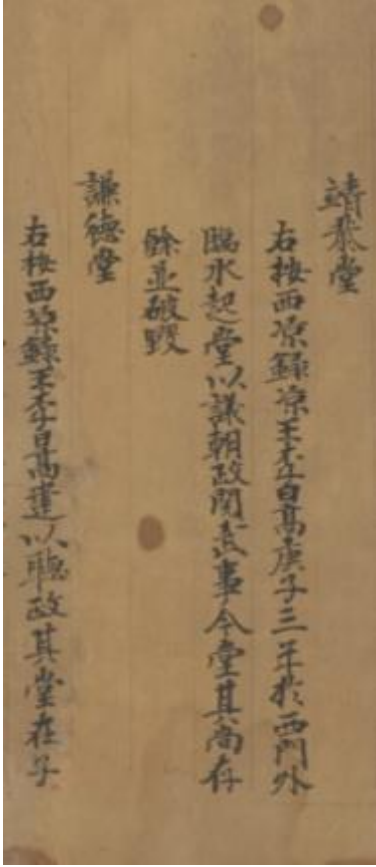 靖恭堂
右按西凉錄凉王李暠庚子三年於西門外
臨水起堂以議朝政閱武事今堂其尚存
餘並破毀
謙德堂
右按西凉錄王李暠建以聽政其堂在子